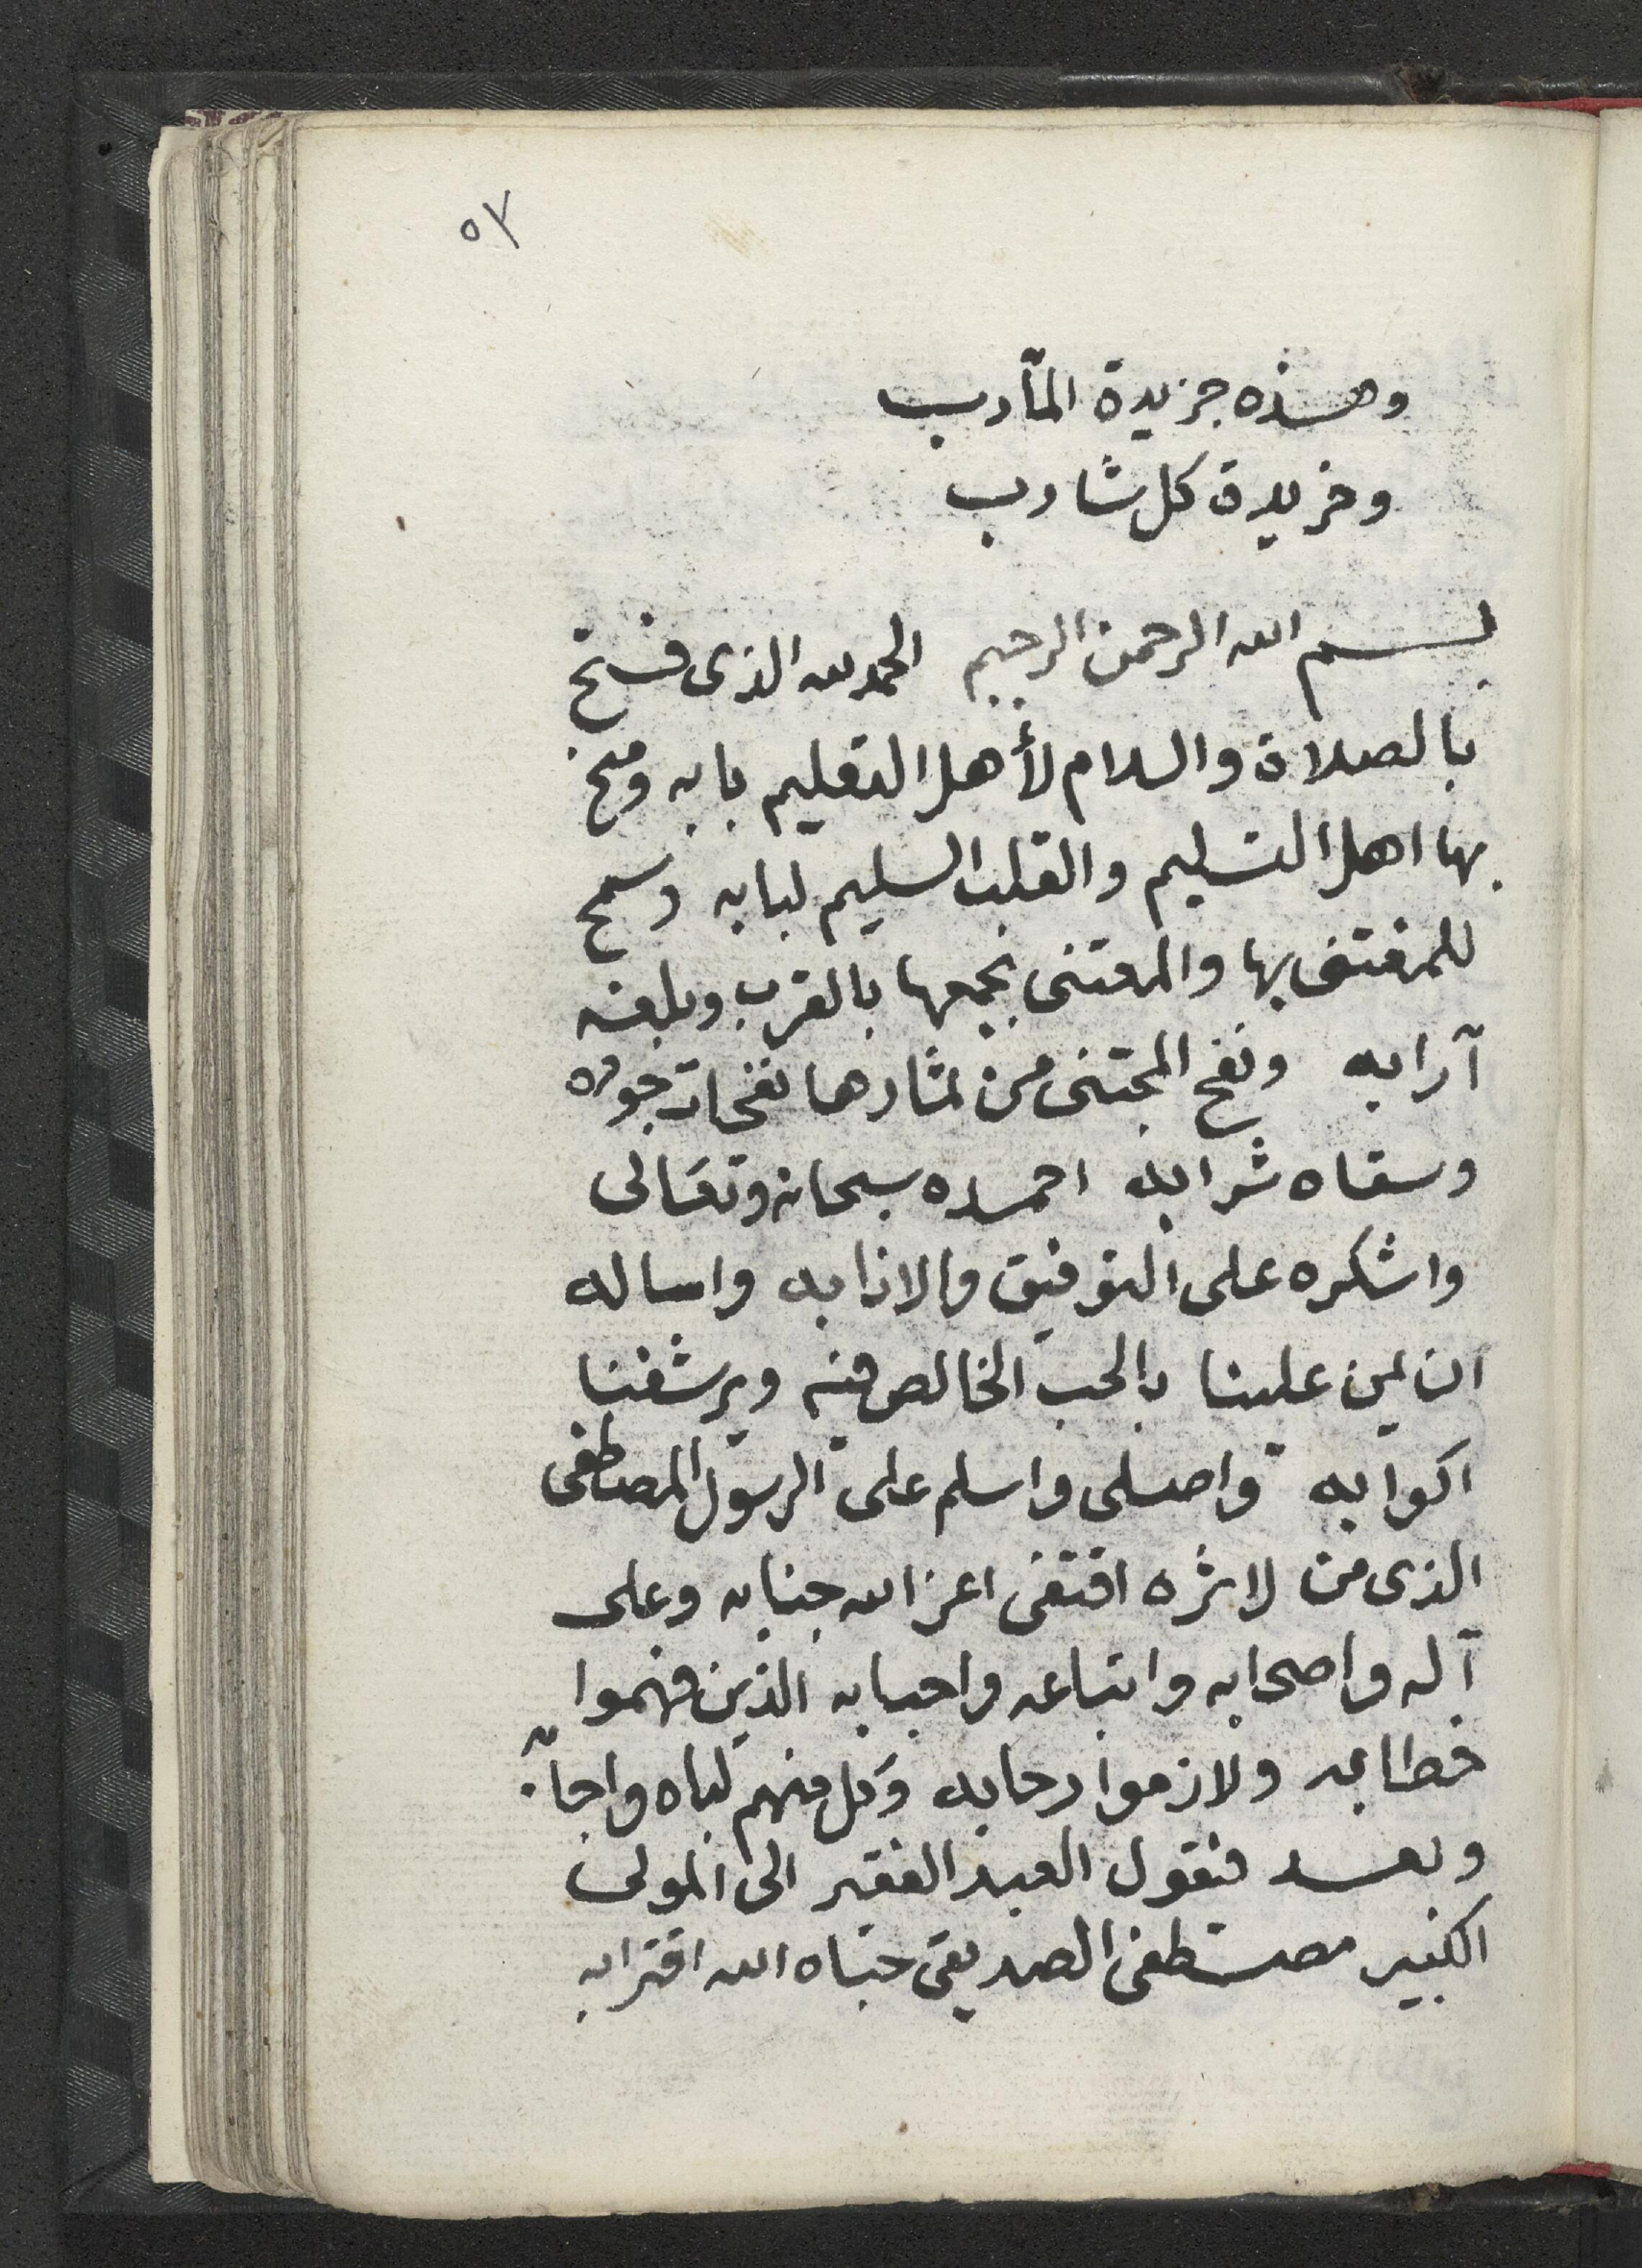 ٥٧
وهذه جزيدة المآدب
وخريدة كل شارب
بسم الله الرحمن الرحيم الحمد لله الذى فتح
بالصلاة والسلام لأهل التعليم بابه ومنح
بها اهل التسليم والقلب السليم لبابه وسمح
للمغتنى بها والمعتنى بجمعها بالقرب وبلغه
آرابه ونفح المجتنى من ثمارها نفحات جوده
وسقاه شرابه احمده سبحانه وتعَالى
واشكره على التوفيق والانابه واساله
ان يمن علينا بالحب الخالص منه ويرشفنا
اكوابه واصلى واسلم على الرسول المصطفى
الذى من لاثره اقتفى اعز الله جنابه وعلى
آله واصحابه واتباعه واحبابه الذين فهموا
خطابه ولازموا رحابه وكل منهم لباه واجابه
وبعد فنقول العبد الفقير الى المولى
الكبير مصطفى الصديقى حباه الله اقترابه